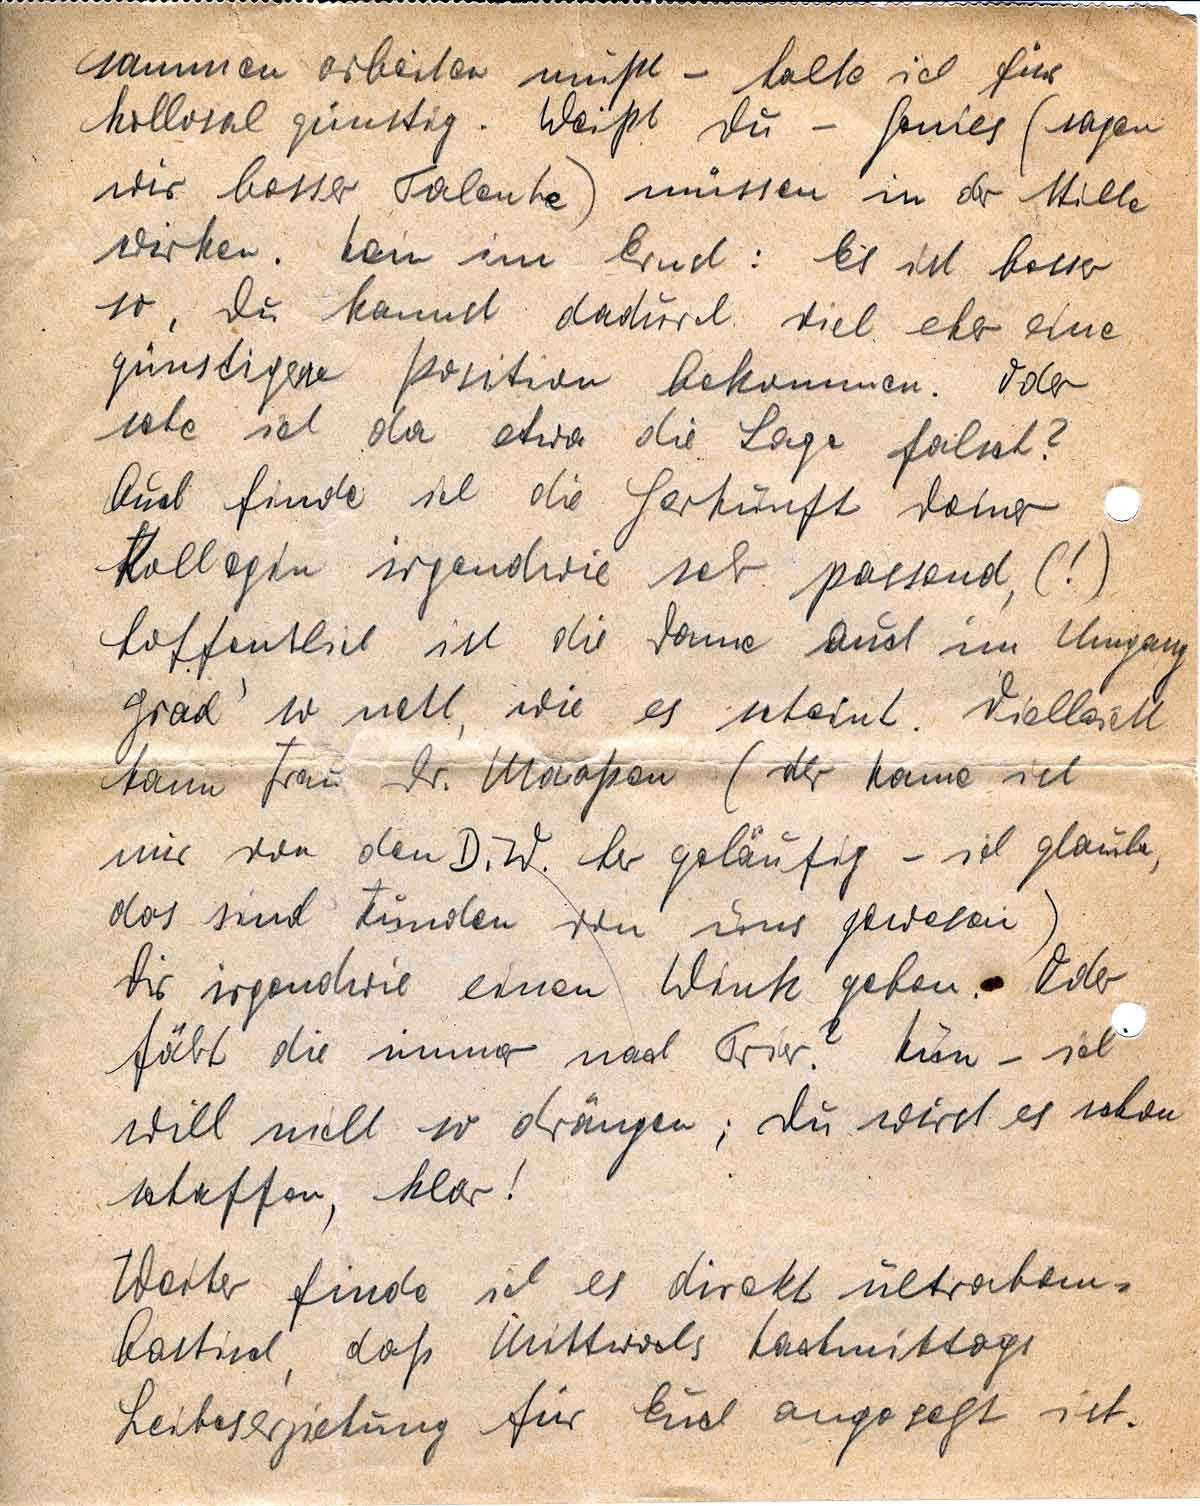 sammen arbeiten mußt – halte ich für
kollosal günstig. Weißt Du – Genies (sagen
wir besser Talente) müssen in der Stille
wirken. Nein im Ernst: Es ist besser
so, Du kannst dadurch viel eher eine
günstigere Position bekommen. Oder
sehe ich da etwa die Lage falsch?
Auch finde ich die Herkunft Deiner
Kollegin irgendwie sehr passend, (!)
hoffentlich ist die Dame auch im Umgang
grad' so nett, wie es scheint. Vielleicht
kann Frau Dr. Maaßen (der Name ist
mir von den D.W. her geläufig – ich glaube,
das sind Kunden von uns gewesen)
Dir irgendwie einen Wink geben. Oder
fährt die immer nach Trier? Nun – ich
will nicht so drängen; Du wirst es schon
schaffen, klar!
Weiter finde ich es direkt ultrabom=
bastisch, daß Mittwochs Nachmittags
Leibeserziehung für Euch angesetzt ist.